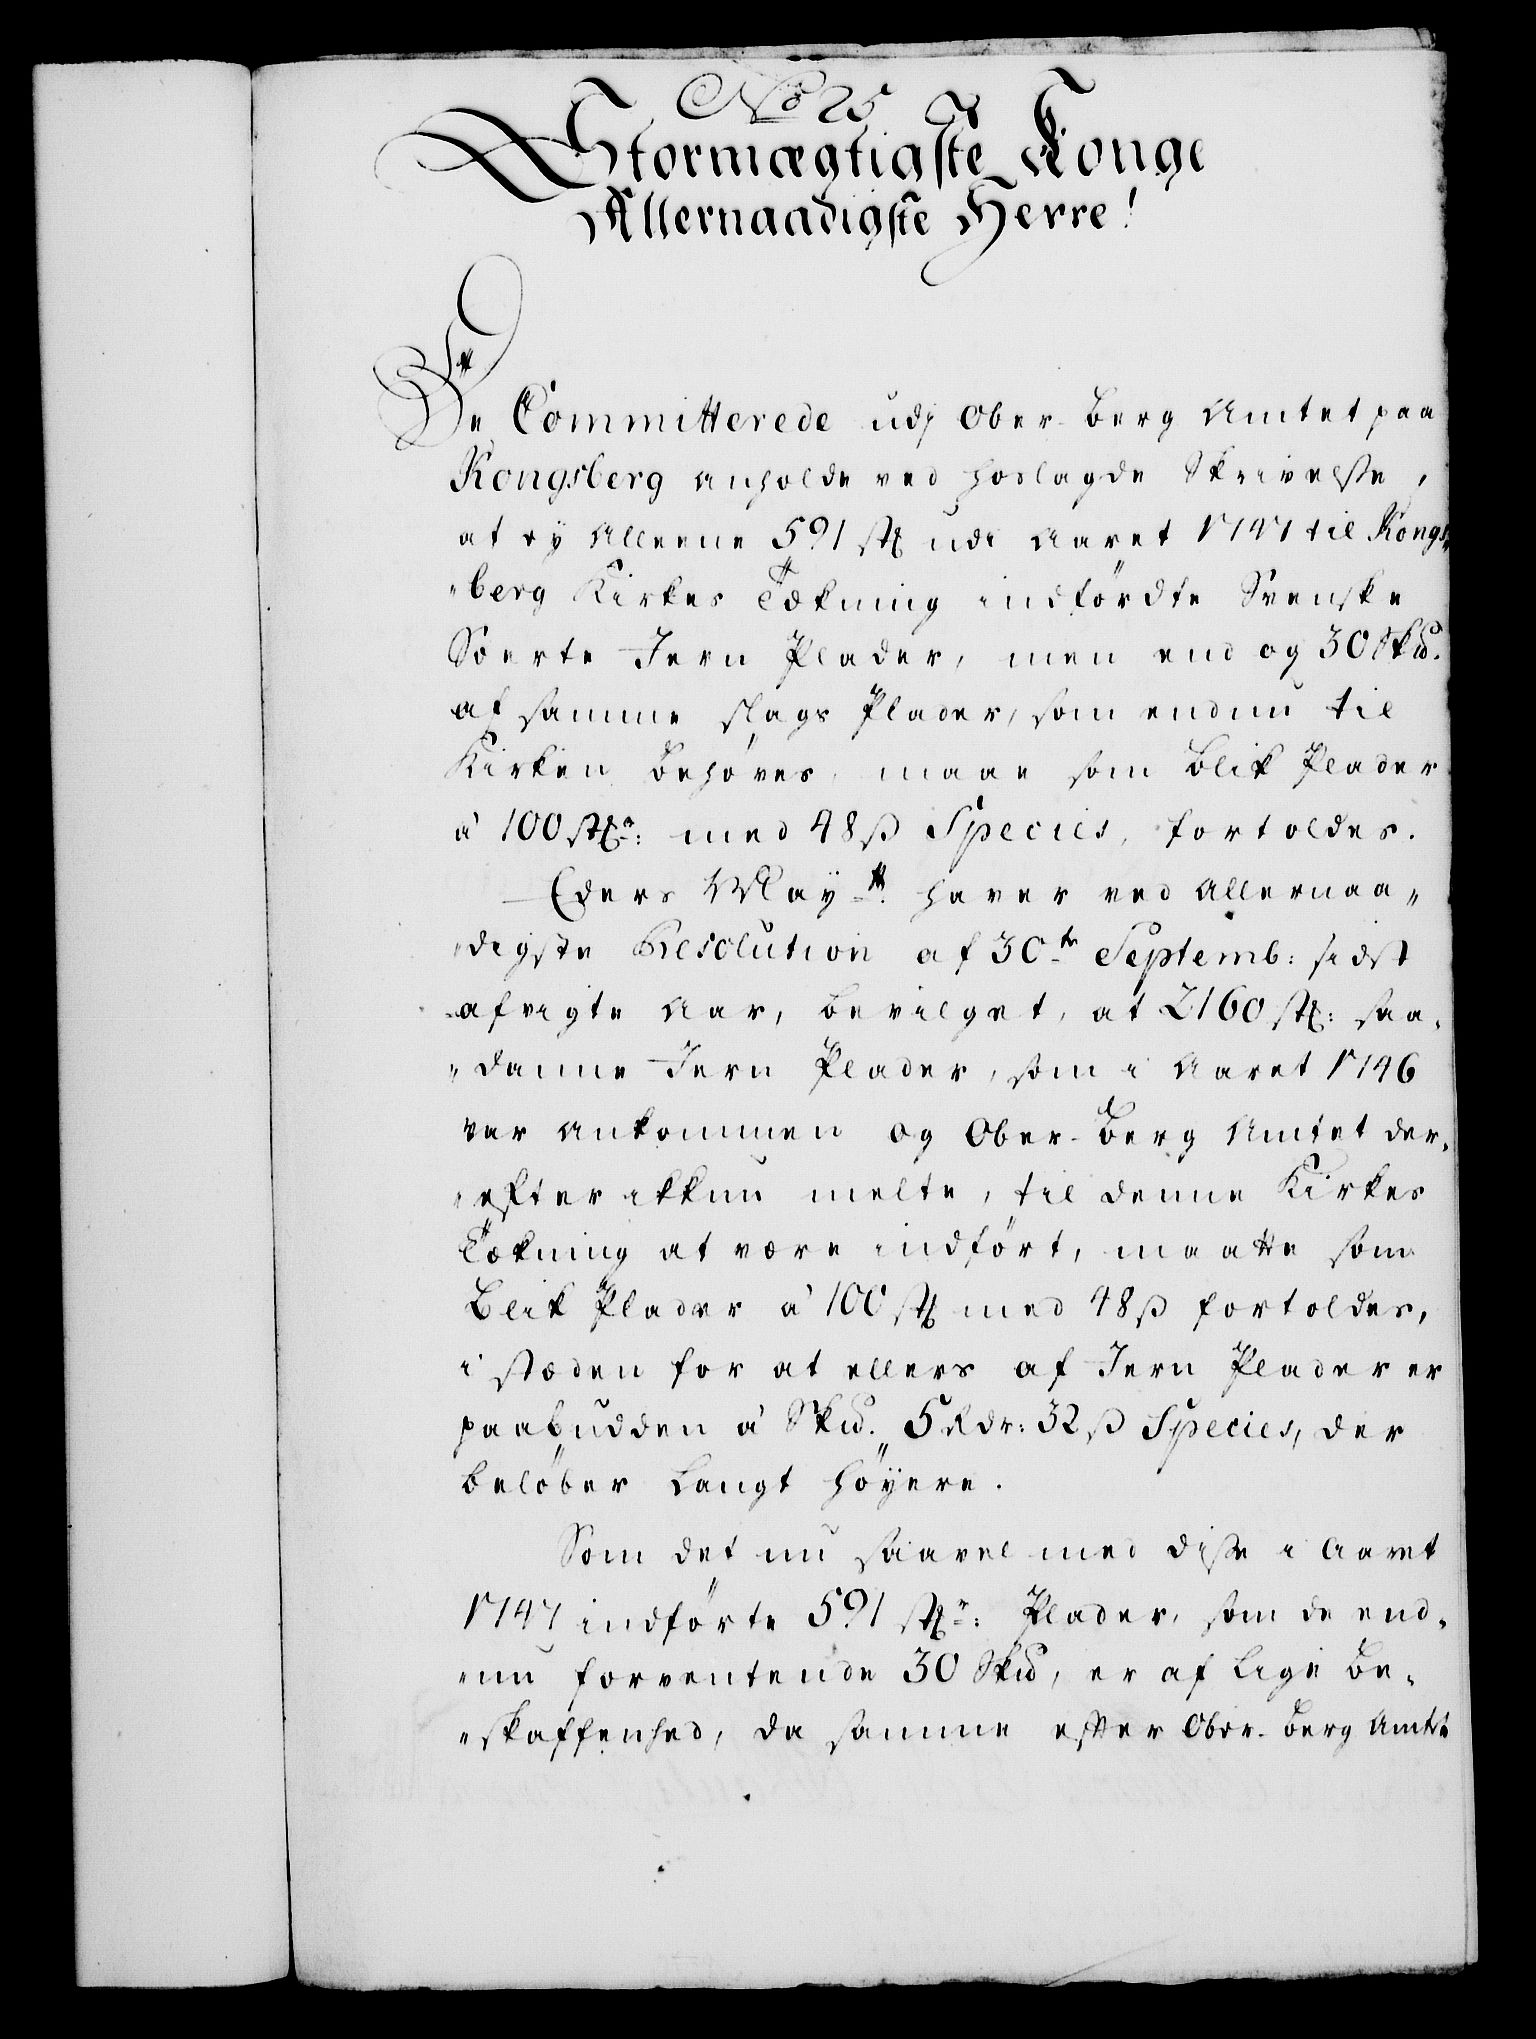 No 25
Stormægtigste Konge
Allernaadigste Herre!
De Committerede udj Ober-Berg Amtet paa
Kongsberg anholde ved hoslagde Skrivelse,
at ey Alleene 591 stk udi Aaret 1747 til Kongs„
„berg Kirkes Tækning indfördte Svenske
Soerte Jern Plader, men end og 30 Skd.
af samme slags Plader, som endnu til
Kirken behøves, maae som Blik Plader
à 100 stkr: med 48 ß Species, fortoldes.
Eders Mayt. haver ved Allernaa„
„digste Resolution af 30te Septemb: sidst
„afvigte Aar, bevilget, at 2160 stk: saa„
„danne Jern Plader, som i Aaret 1746
var ankommen og Ober-Berg Amtet der„
„efter ikkun melte, til denne Kirkes
Tækning at være indfört, maatte som
Blik Plader à 100 stk med 48 ß fortoldes,
i stæden for at ellers af Jern Plader er
paabudden à Skd. 5 Rdr: 32 ß Species, der
belöber Langt höyere.
Som det nu saavel med disse i Aaret
1747 indförte 591 stkr: Plader, som de end„
„nu forventende 30 Skd, er af Lige be„
„skaffenhed, da samme efter Ober-Berg Amtets